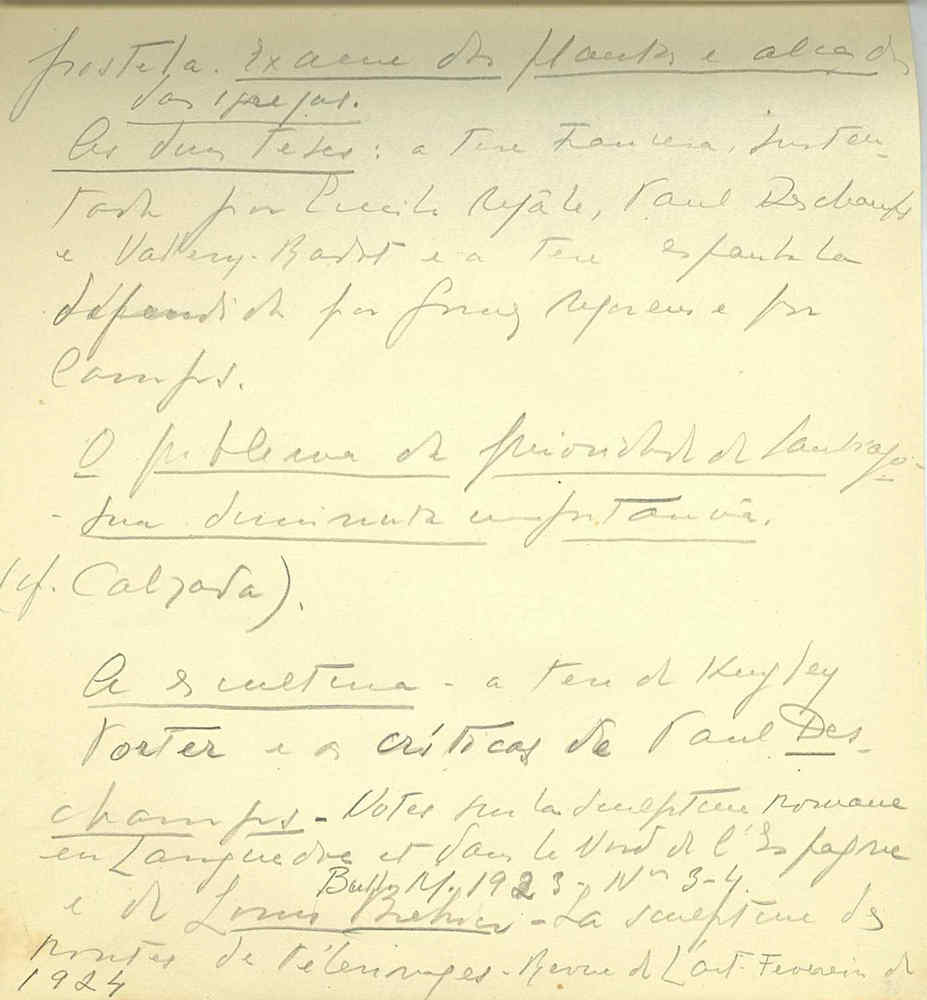 postela. Exame das plantas e alçados
das igrejas.
As duas teses: a tese Francesa, susten-
tada por Paul Deschamps
e Vallery-Radot e a tese espanhola
defendida por Gomez Moreno e por
Camps.
O problema da prioridade de Santiago -
- sua diminuta importancia.
(cf. Calzada).
A escultura - a tese de Kingsley
Porter e as críticas de Paul Des-
champs - Notes sur la sculpture romane
en Languedoc et dans le Nord de l'Espagne
Bull. M. 1923 - Nos 3-4.
e de Louis Brehier - La sculpture des
routes de Pélerinages - Revue de L'art Fevereiro de
1924